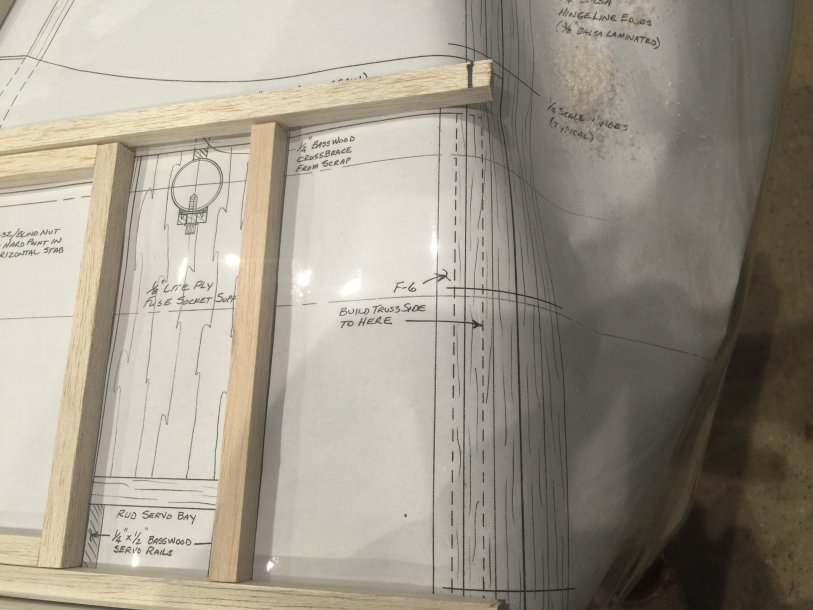 HINGE LINE EDGES
(3/16" BALSA LAMINATED)
1/4 SCALE
(TYPICAL)
1/4" BASSWOOD
CROSSBRACE
FROM SCRAP
/BLIND NUT
HARD POINT IN
STAB
1/8" LITE PLY
FUSE SOCKET
F-6
BUILD TRUSS SIDE
TO HERE
RUD SERVO BAY
1/4" x 1/2" BASSWOOD
SERVO RAILS